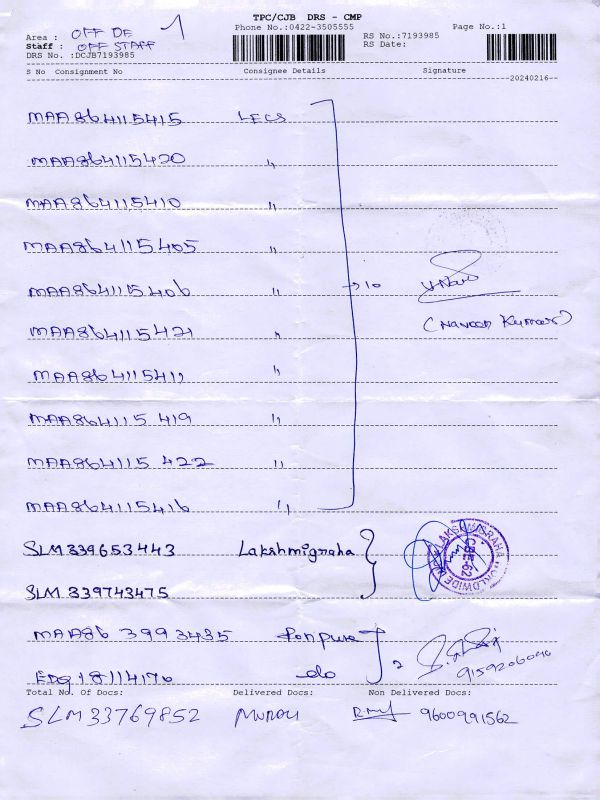 TPC/CJB DRS - CMP
Phone No.:0422-3505555
Page No.:1
Area : OFF DE 1
Staff : OFF STAFF
DRS No. :DCJB7193985
RS No.:7193985
RS Date:
S No Consignment No Consignee Details Signature
20240216
MAA864115415 LECS
MAA864115420 "
MAA864115410 "
MAA864115405 "
MAA864115406 " → 10
MAA864115421 " (Naveen Kumar)
MAA864115411 "
MAA864115419 "
MAA864115422 "
MAA864115416 "
SLM339653443 Lakshmigraha
SLM 339743475
LAKSHMIGRAHA WORLDWIDE
CBE-62
MAA863993435 Ponpure
2
9159206090
EDQ18114176 do
Total No. Of Docs: Delivered Docs: Non Delivered Docs:
SLM33769852 Murali 9600991562